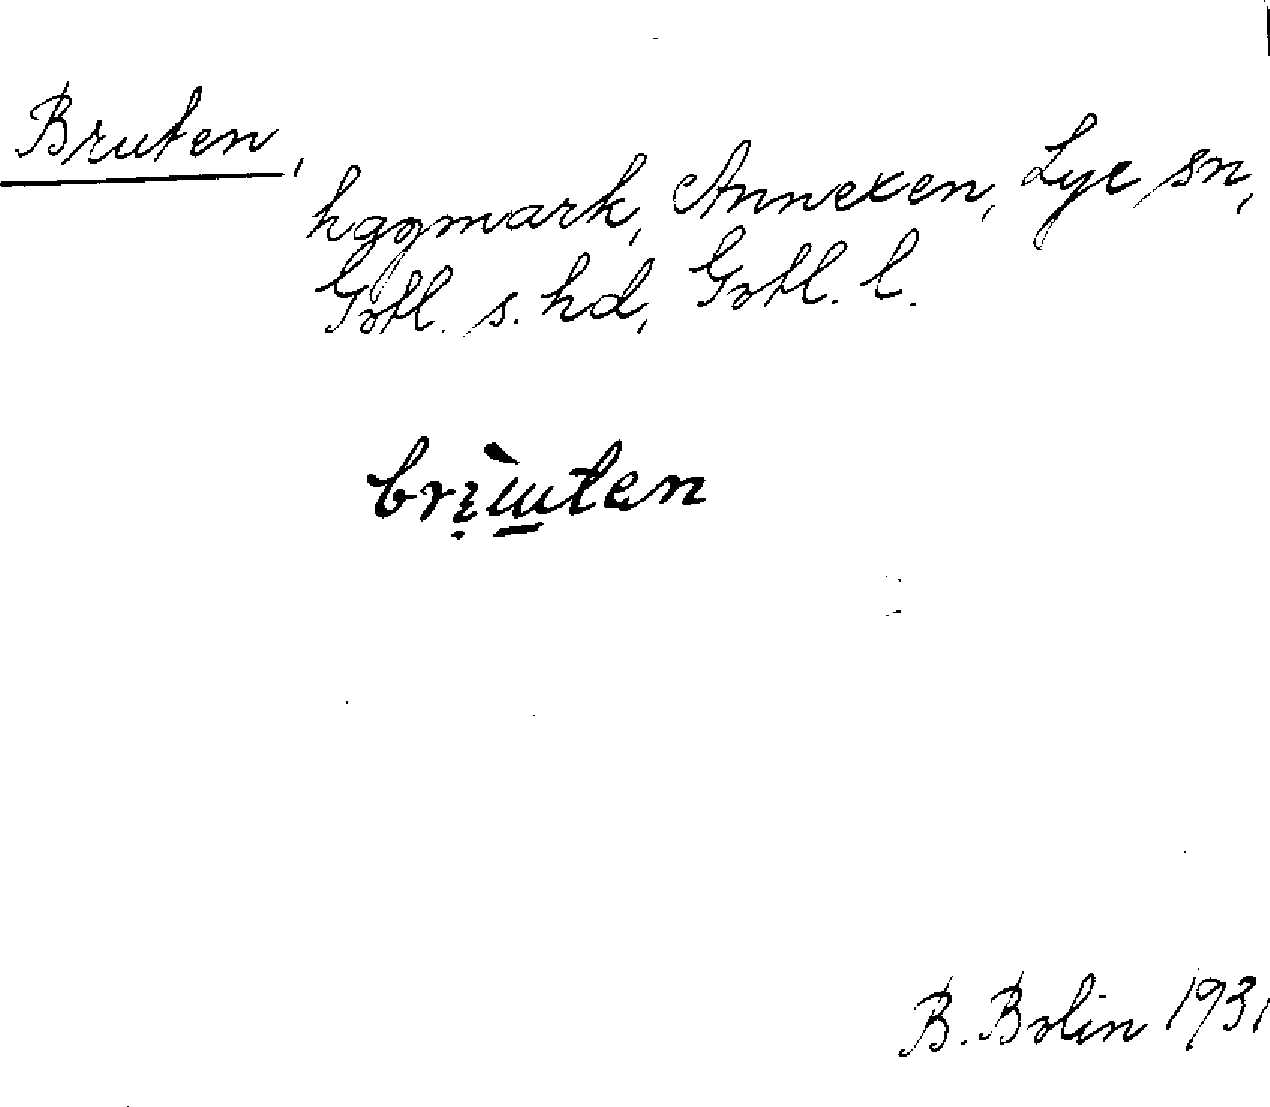 Bruten,
hagmark, Annexen, Lye sn,
Gotl. s. hd, Gotl. l.
B. Bolin 1931